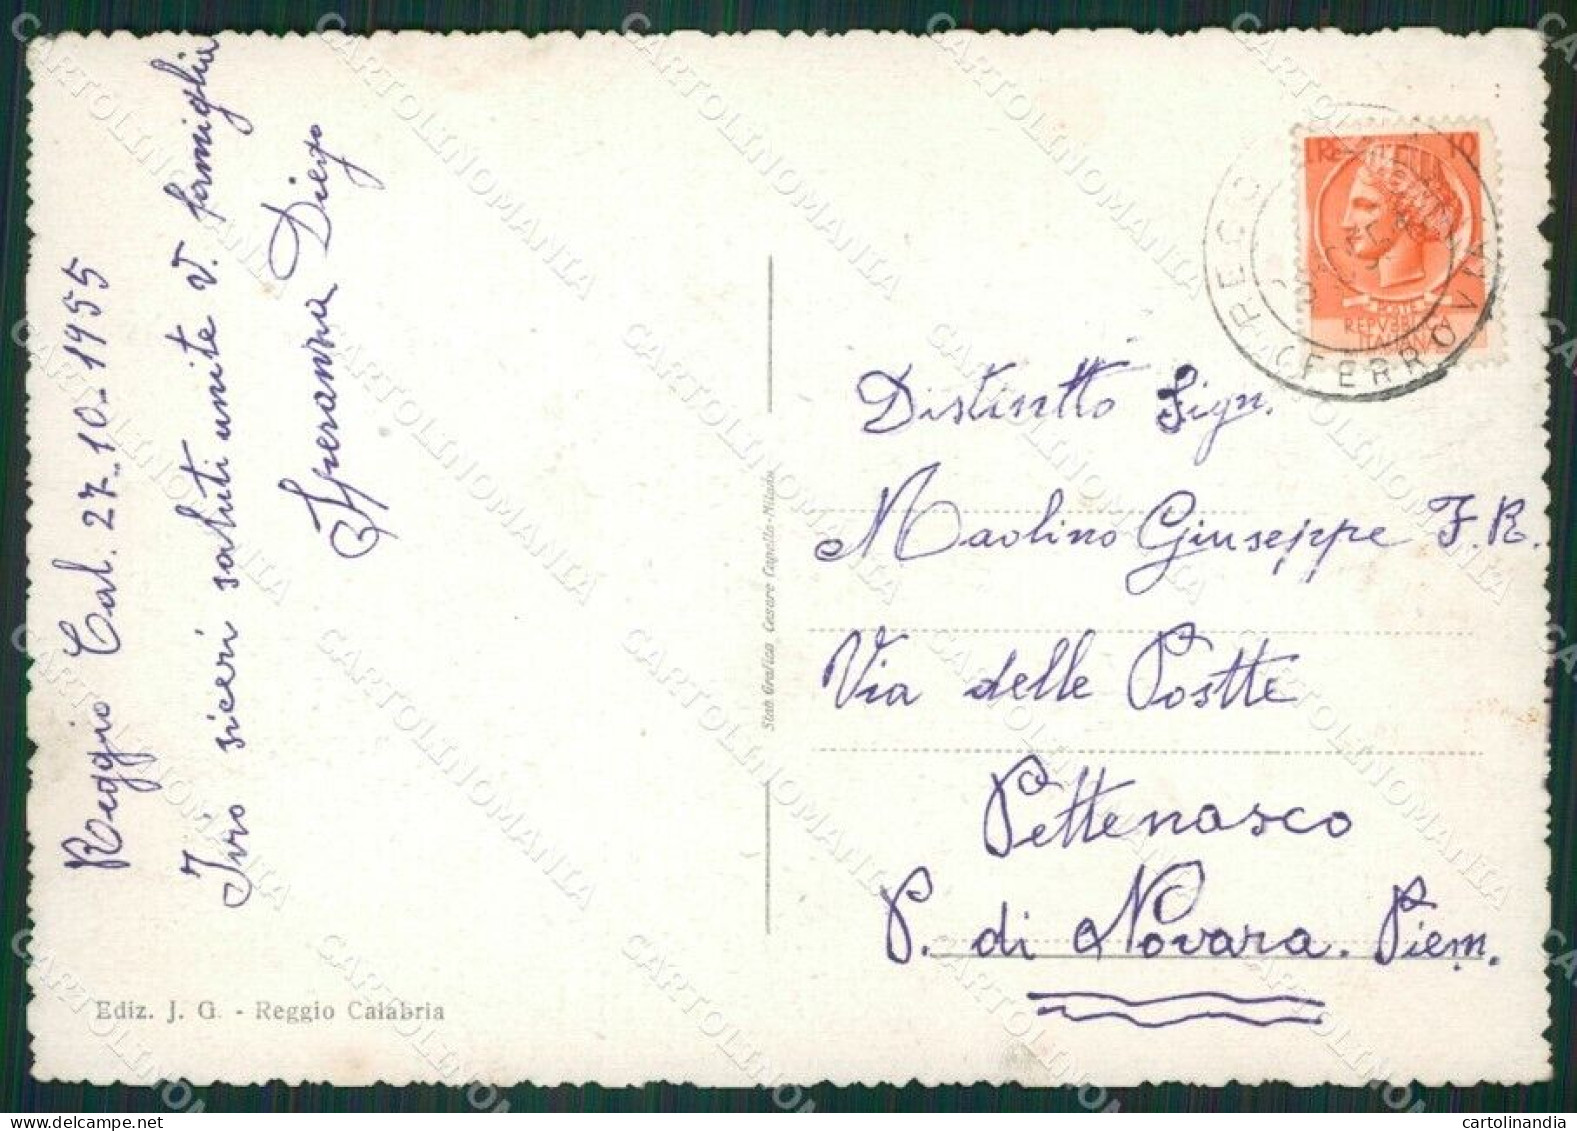 Reggio Cal. 27-10-1955
Ivio sieri saluti unite V. famiglia
Speranza Diego
Ediz. J. G. - Reggio Calabria
Stab. Grafico Cesare Capello-Milano
LIRE 10
POSTE
REPVBBLICA
ITALIANA
REGGIO
FERROVIA
Distintto Sign.
Maolino Giuseppe F.R.
Via delle Postte
Pettenasco
P. di Novara. Piem.
CARTOLINOMANIA
cartolinandia